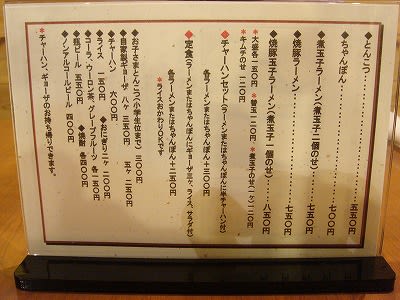 ◆とんこつ………………五五〇円
◆ちゃんぽん……………七五〇円
◆煮玉子ラーメン（煮玉子一個のせ）…七〇〇円
◆焼豚ラーメン…………七五〇円
◆焼豚玉子ラーメン（煮玉子一個のせ）…八五〇円
＊大盛各一五〇円 ＊替玉一二〇円 ＊煮玉子のせ（一ヶ）一二〇円
＊キムチのせ一二〇円
◆チャーハンセット（ラーメンまたはちゃんぽんに半チャーハン付）
各ラーメンまたはちゃんぽん＋三〇〇円
◆定食（ラーメンまたはちゃんぽんにギョーザ三ヶ、ライス、サラダ付）
各ラーメンまたはちゃんぽん＋二五〇円
＊ライスおかわりOKです
◆お子さまとんこつ（小学生位まで）三〇〇円
◆自家製ギョーザ 八ヶ 三五〇円 五ヶ 二五〇円
◆チャーハン 六〇〇円
◆ライス 一五〇円 ◆おにぎり二ヶ 二〇〇円
◆コーラ、ウーロン茶、グレープフルーツ 各一五〇円
◆瓶ビール 五五〇円 ◆焼酎 各四〇〇円
◆ノンアルコールビール 四〇〇円
＊チャーハン、ギョーザのお持ち帰りできます。